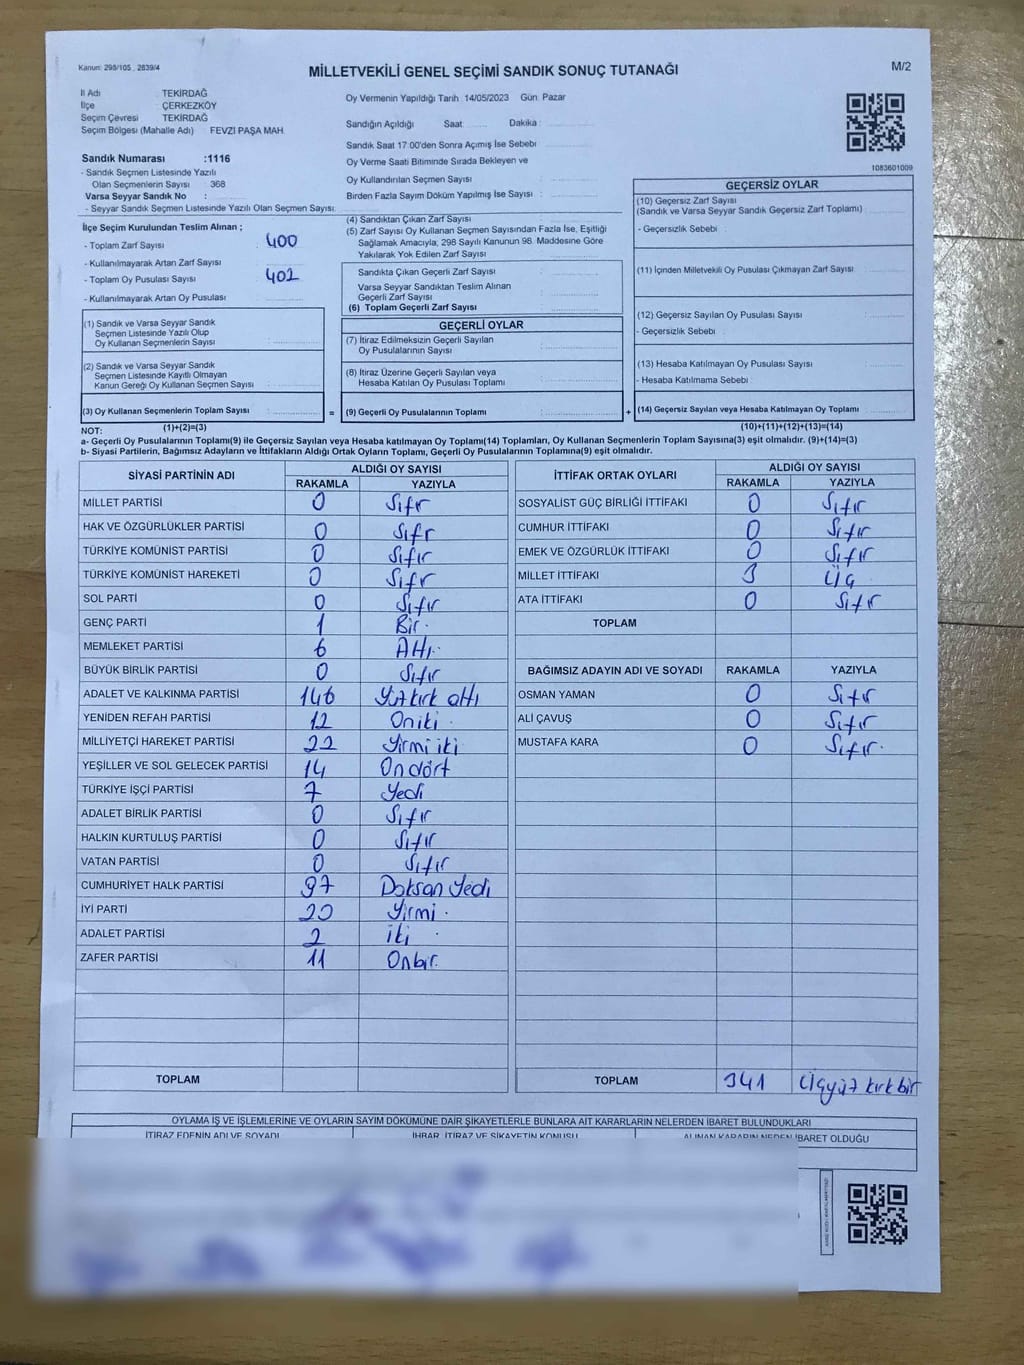 Kanun: 298/105 , 2839/4
MİLLETVEKİLİ GENEL SEÇİMİ SANDIK SONUÇ TUTANAĞI
M/2
İl Adı TEKİRDAĞ
İlçe ÇERKEZKÖY
Seçim Çevresi TEKİRDAĞ
Seçim Bölgesi (Mahalle Adı) FEVZİ PAŞA MAH.
Sandık Numarası :1116
- Sandık Seçmen Listesinde Yazılı
Olan Seçmenlerin Sayısı : 368
Varsa Seyyar Sandık No :
- Seyyar Sandık Seçmen Listesinde Yazılı Olan Seçmen Sayısı:
İlçe Seçim Kurulundan Teslim Alınan ;
- Toplam Zarf Sayısı : 400
- Kullanılmayarak Artan Zarf Sayısı :
- Toplam Oy Pusulası Sayısı : 402
- Kullanılmayarak Artan Oy Pusulası :
(1) Sandık ve Varsa Seyyar Sandık
Seçmen Listesinde Yazılı Olup
Oy Kullanan Seçmenlerin Sayısı :
(2) Sandık ve Varsa Seyyar Sandık
Seçmen Listesinde Kayıtlı Olmayan
Kanun Gereği Oy Kullanan Seçmen Sayısı :
(3) Oy Kullanan Seçmenlerin Toplam Sayısı :
(1)+(2)=(3)
Oy Vermenin Yapıldığı Tarih : 14/05/2023 Gün: Pazar
Sandığın Açıldığı Saat: Dakika :
Sandık Saat 17:00'den Sonra Açımış İse Sebebi :
Oy Verme Saati Bitiminde Sırada Bekleyen ve
Oy Kullandırılan Seçmen Sayısı :
Birden Fazla Sayım Döküm Yapılmış İse Sayısı :
(4) Sandıktan Çıkan Zarf Sayısı :
(5) Zarf Sayısı Oy Kullanan Seçmen Sayısından Fazla İse, Eşitliği
Sağlamak Amacıyla, 298 Sayılı Kanunun 98. Maddesine Göre
Yakılarak Yok Edilen Zarf Sayısı :
Sandıkta Çıkan Geçerli Zarf Sayısı :
Varsa Seyyar Sandıktan Teslim Alınan
Geçerli Zarf Sayısı :
(6) Toplam Geçerli Zarf Sayısı :
GEÇERLİ OYLAR
(7) İtiraz Edilmeksizin Geçerli Sayılan
Oy Pusulalarının Sayısı :
(8) İtiraz Üzerine Geçerli Sayılan veya
Hesaba Katılan Oy Pusulası Toplamı :
= (9) Geçerli Oy Pusulalarının Toplamı :
1083601009
GEÇERSİZ OYLAR
(10) Geçersiz Zarf Sayısı
(Sandık ve Varsa Seyyar Sandık Geçersiz Zarf Toplamı) :
- Geçersizlik Sebebi :
(11) İçinden Milletvekili Oy Pusulası Çıkmayan Zarf Sayısı :
(12) Geçersiz Sayılan Oy Pusulası Sayısı :
- Geçersizlik Sebebi :
(13) Hesaba Katılmayan Oy Pusulası Sayısı :
- Hesaba Katılmama Sebebi :
+ (14) Geçersiz Sayılan veya Hesaba Katılmayan Oy Toplamı :
(10)+(11)+(12)+(13)=(14)
NOT:
a- Geçerli Oy Pusulalarının Toplamı(9) ile Geçersiz Sayılan veya Hesaba katılmayan Oy Toplamı(14) Toplamları, Oy Kullanan Seçmenlerin Toplam Sayısına(3) eşit olmalıdır. (9)+(14)=(3)
b- Siyasi Partilerin, Bağımsız Adayların ve İttifakların Aldığı Ortak Oyların Toplamı, Geçerli Oy Pusulalarının Toplamına(9) eşit olmalıdır.
SİYASİ PARTİNİN ADI ALDIĞI OY SAYISI
RAKAMLA YAZIYLA
MİLLET PARTİSİ 0 Sıfır
HAK VE ÖZGÜRLÜKLER PARTİSİ 0 Sıfır
TÜRKİYE KOMÜNİST PARTİSİ 0 Sıfır
TÜRKİYE KOMÜNİST HAREKETİ 0 Sıfır
SOL PARTİ 0 Sıfır
GENÇ PARTİ 1 Bir.
MEMLEKET PARTİSİ 6 Altı.
BÜYÜK BİRLİK PARTİSİ 0 Sıfır
ADALET VE KALKINMA PARTİSİ 146 Yüzkırk altı
YENİDEN REFAH PARTİSİ 12 Oniki.
MİLLİYETÇİ HAREKET PARTİSİ 22 Yirmi iki
YEŞİLLER VE SOL GELECEK PARTİSİ 14 Ondört
TÜRKİYE İŞÇİ PARTİSİ 7 Yedi
ADALET BİRLİK PARTİSİ 0 Sıfır
HALKIN KURTULUŞ PARTİSİ 0 Sıfır
VATAN PARTİSİ 0 Sıfır
CUMHURİYET HALK PARTİSİ 97 Doksan Yedi
İYİ PARTİ 20 Yirmi.
ADALET PARTİSİ 2 iki.
ZAFER PARTİSİ 11 Onbir.
TOPLAM
İTTİFAK ORTAK OYLARI ALDIĞI OY SAYISI
RAKAMLA YAZIYLA
SOSYALİST GÜÇ BİRLİĞİ İTTİFAKI 0 Sıfır
CUMHUR İTTİFAKI 0 Sıfır
EMEK VE ÖZGÜRLÜK İTTİFAKI 0 Sıfır
MİLLET İTTİFAKI 3 Üç
ATA İTTİFAKI 0 Sıfır
TOPLAM
BAĞIMSIZ ADAYIN ADI VE SOYADI RAKAMLA YAZIYLA
OSMAN YAMAN 0 Sıfır
ALİ ÇAVUŞ 0 Sıfır
MUSTAFA KARA 0 Sıfır.
TOPLAM 341 Üçyüz kırk bir
OYLAMA İŞ VE İŞLEMLERİNE VE OYLARIN SAYIM DÖKÜMÜNE DAİR ŞİKAYETLERLE BUNLARA AİT KARARLARIN NELERDEN İBARET BULUNDUKLARI
İTİRAZ EDENİN ADI VE SOYADI İHBAR, İTİRAZ VE ŞİKAYETİN KONUSU ALINAN KARARIN NEDEN İBARET OLDUĞU